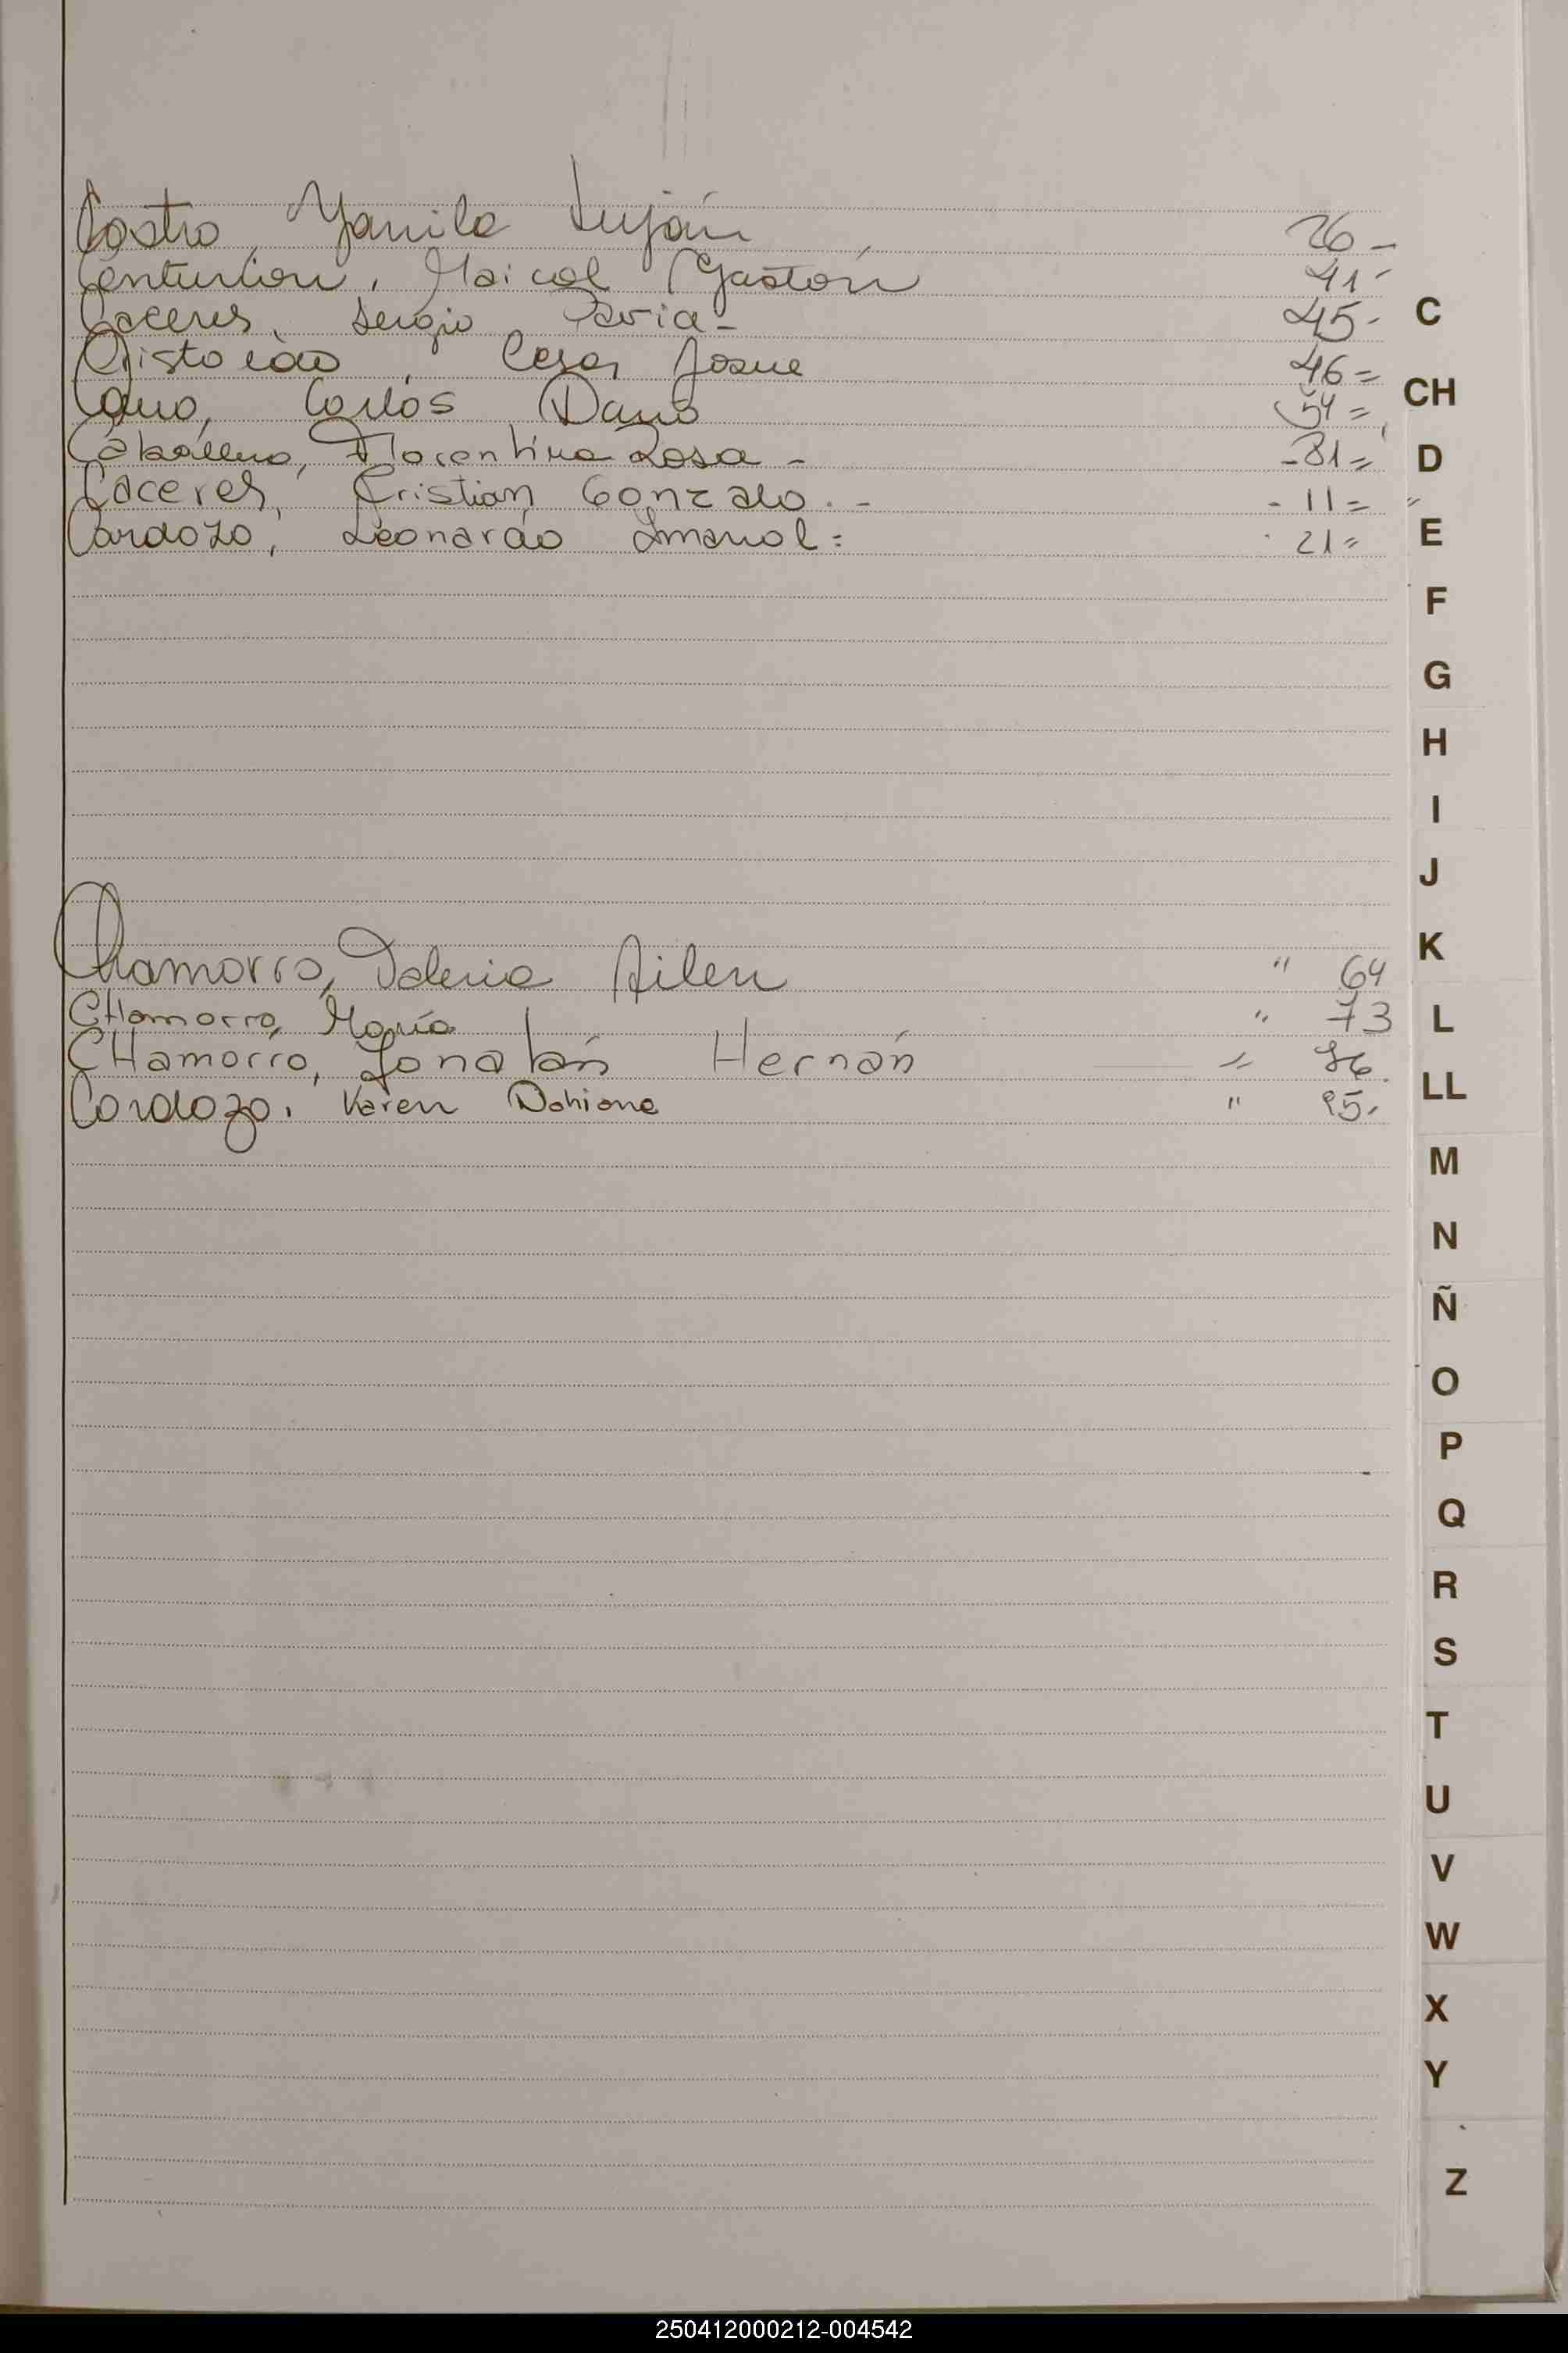 Castro, Yamila Luján 26-
Centurion, Maicol Gastón 41-
Caceres, Sergio 45-
Cesar Josue 46=
Cano, Carlos 54=
Caballero, Florentina Rosa - -81=
Caceres, Cristian Gonzalo.- - 11= "
Cardozo, Leonardo Imanol= 21=
C
CH
D
E
F
G
H
I
J
Chamorro, Valeria Ailen " 64
CHamorro, María " 73
CHamorro, Jonatán Hernán =
Cordozo, Karen Dahiana "
K
L
LL
M
N
Ñ
O
P
Q
R
S
T
U
V
W
X
Y
Z
250412000212-004542